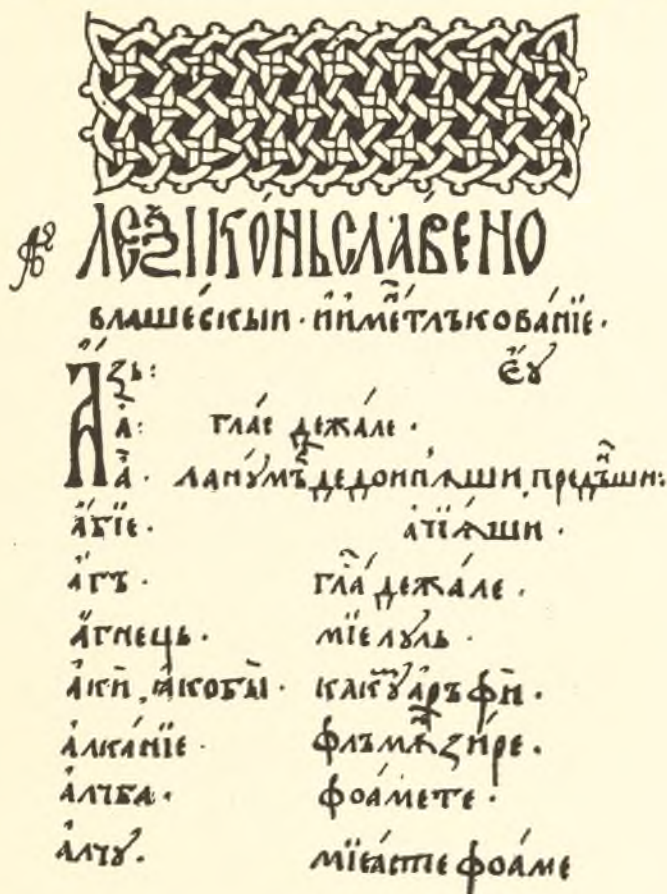 ЛЕѮІКО́НЬ СЛАВЕ́НО
влашéскыи · и҆ и҆ме́ⷩ҇ тлъкова́нїе ·
А҆́зь : є҆́ꙋ
а҆̀ : гла́с де жа́ле ·
а҃ · ла нꙋ́мъⷬ҇ де дои пѧ́ши,
а҆́бїе · а҆чїѧ́ши ·
а҆́гъ · гла̑ де жа́ле ·
а҆́гнець · мїе́лꙋль ·
а҆кѝ, ꙗ҆́кобы · ка кꙋⷨ а҆́ръ фи̑ ·
а҆лка́нїе · флъмѫнзи́ре ·
а҆́лчба · фоа́мете ·
а҆́лчꙋ · мїе́ а́сте фоа́ме